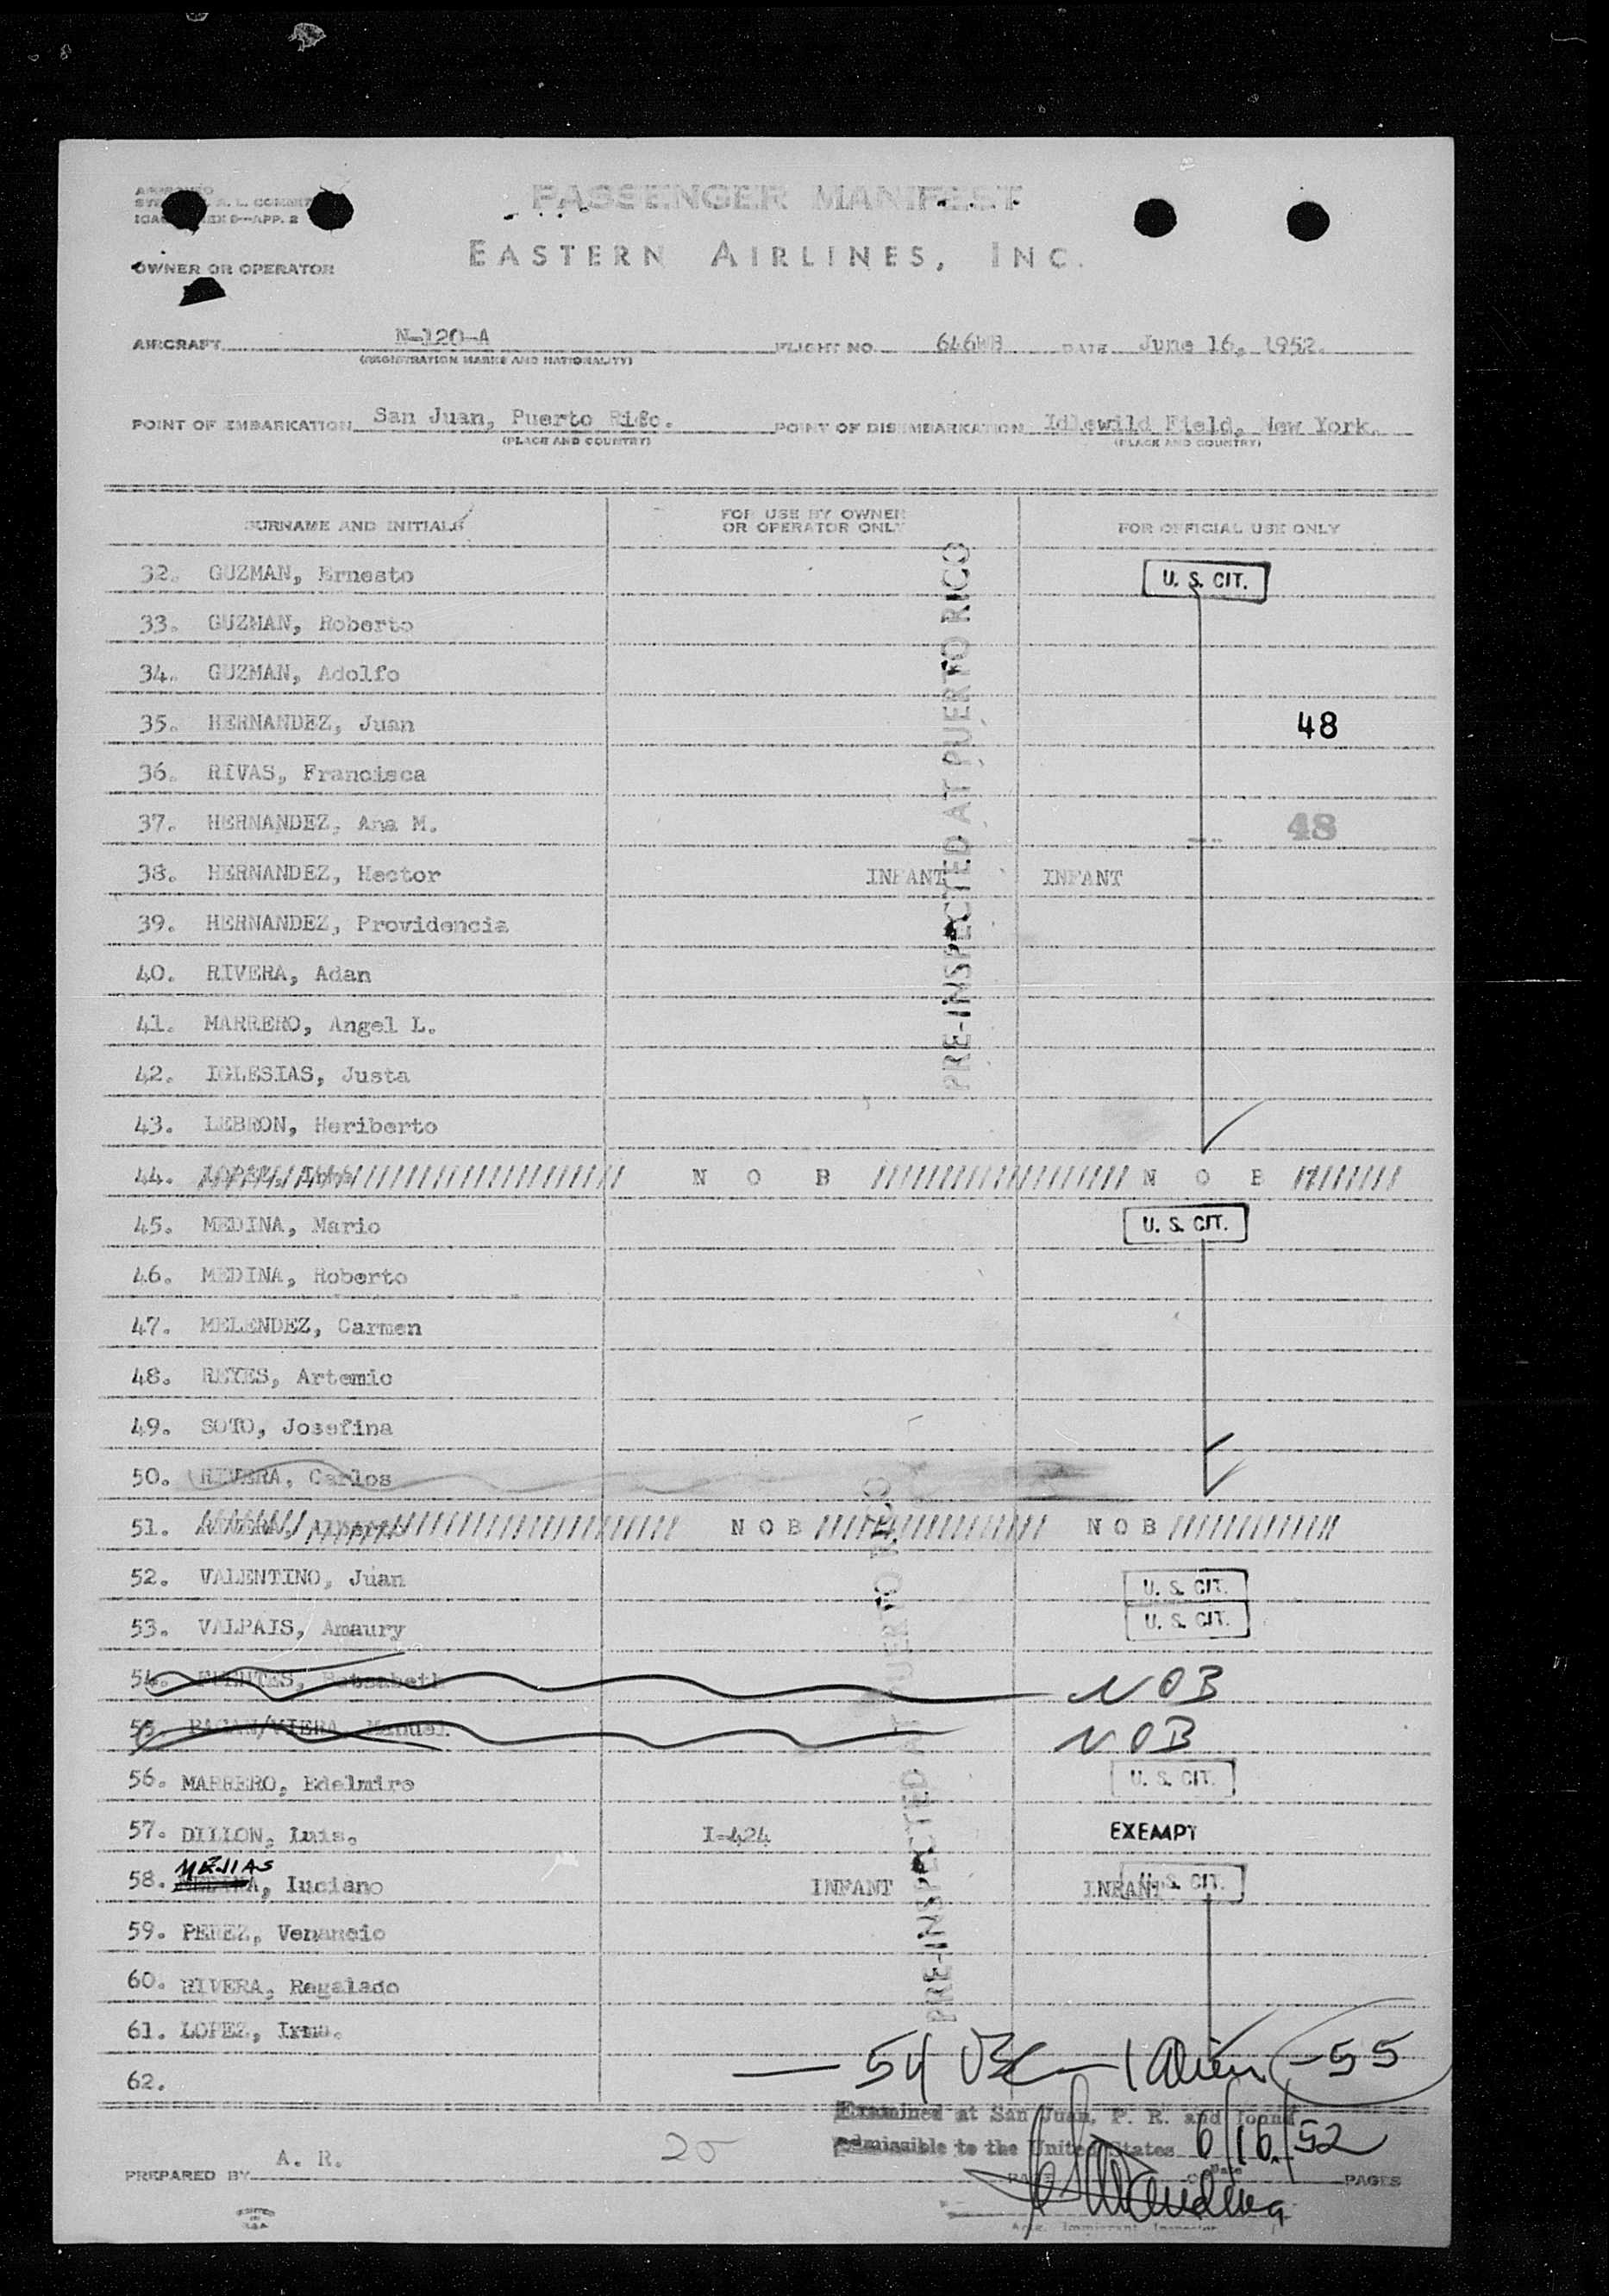 APPROVED
PASSENGER MANIFEST
EASTERN AIRLINES, INC.
OWNER OR OPERATOR
AIRCRAFT N-120-A FLIGHT NO. 646 DATE June 16, 1952.
(REGISTRATION MARKS AND NATIONALITY)
POINT OF EMBARKATION San Juan, Puerto Rico. POINT OF DISEMBARKATION Idlewild Field, New York.
(PLACE AND COUNTRY) (PLACE AND COUNTRY)
SURNAME AND INITIALS FOR USE BY OWNER OR OPERATOR ONLY FOR OFFICIAL USE ONLY
32. GUZMAN, Ernesto U. S. CIT.
33. GUZMAN, Roberto
34. GUZMAN, Adolfo
35. HERNANDEZ, Juan 48
36. RIVAS, Francisca
37. HERNANDEZ, Ana M. 48
38. HERNANDEZ, Hector INFANT INFANT
39. HERNANDEZ, Providencia
40. RIVERA, Adan
41. MARRERO, Angel L.
42. IGLESIAS, Justa
43. LEBRON, Heriberto
PRE-INSPECTED AT PUERTO RICO
44. N O B N O B
45. MEDINA, Mario U. S. CIT.
46. MEDINA, Roberto
47. MELENDEZ, Carmen
48. REYES, Artemio
49. SOTO, Josefina
50. RIVERA, Carlos
51. N O B N O B
52. VALENTINO, Juan U. S. CIT.
53. VALPAIS, Amaury U. S. CIT.
54. FUENTES, NOB
55. PAGAN/VIERA, Manuel NOB
56. MARRERO, Edelmiro U. S. CIT.
57. DILLON, Luis. I-424 EXEMPT
MEJIAS
58. MEDINA, Luciano INFANT INFANT U. S. CIT.
59. PEREZ, Venancio
60. RIVERA, Regalado
61. LOPEZ, Irma.
PRE-INSPECTED AT PUERTO RICO
— 54 USC — 1 alien — 55
62.
Examined at San Juan, P. R. and found
admissible to the United States 6/16/52
Date
25
PREPARED BY A. R. PAGE OF PAGES
Immigrant Inspector